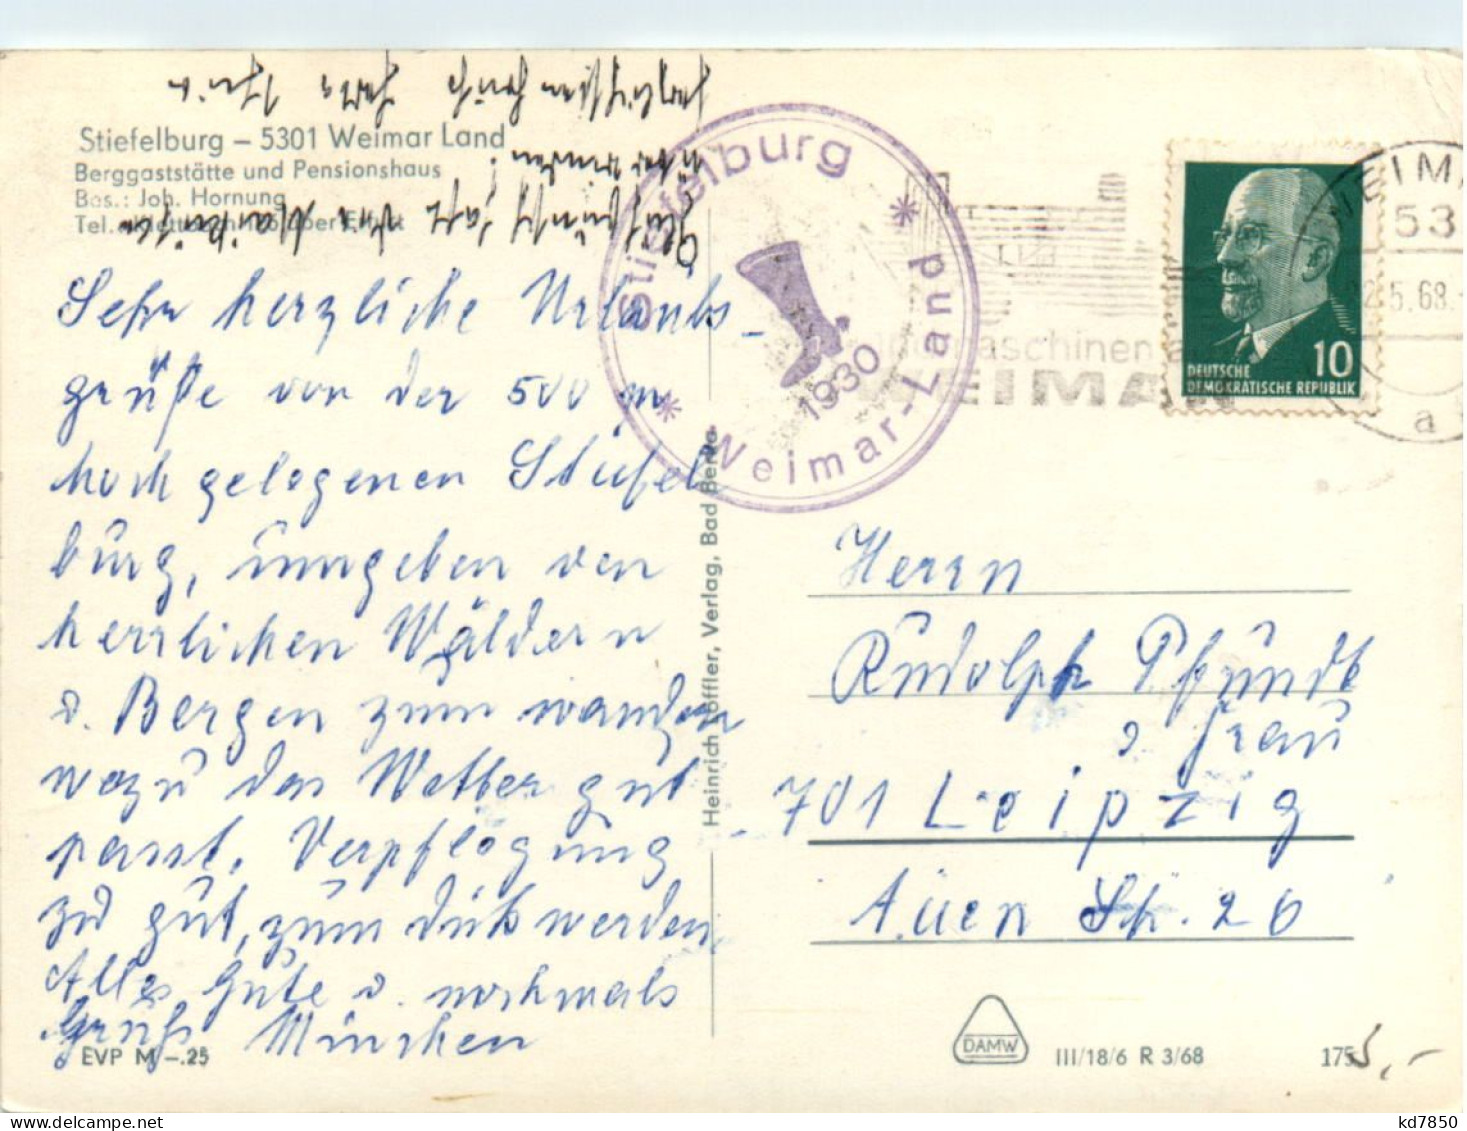 Stiefelburg – 5301 Weimar Land
Berggaststätte und Pensionshaus
Bes.: Joh. Hornung
Tel. Klettbach 116 über Erfurt
Sehr herzliche Urlaubs-
grüße von der 500 m
hoch gelegenen Stiefel
burg, umgeben von
herrlichen Wäldern
u. Bergen zum wandern
wozu das Wetter gut
passt. Verpflegung
zu gut, zum dick werden.
Alles Gute u. nochmals
Gruß München
EVP M –.25
Stiefelburg
1930
Weimar-Land
Heinrich Löffler, Verlag, Bad Berka
maschinen a
WEIMAR
WEIMA
53
2.5.68
a
10
DEUTSCHE
DEMOKRATISCHE REPUBLIK
Herrn
Rudolph Pfundt
u. Frau
701 Leipzig
Auen Str. 26
DAMW
III/18/6 R 3/68
175
5,-
kd7850